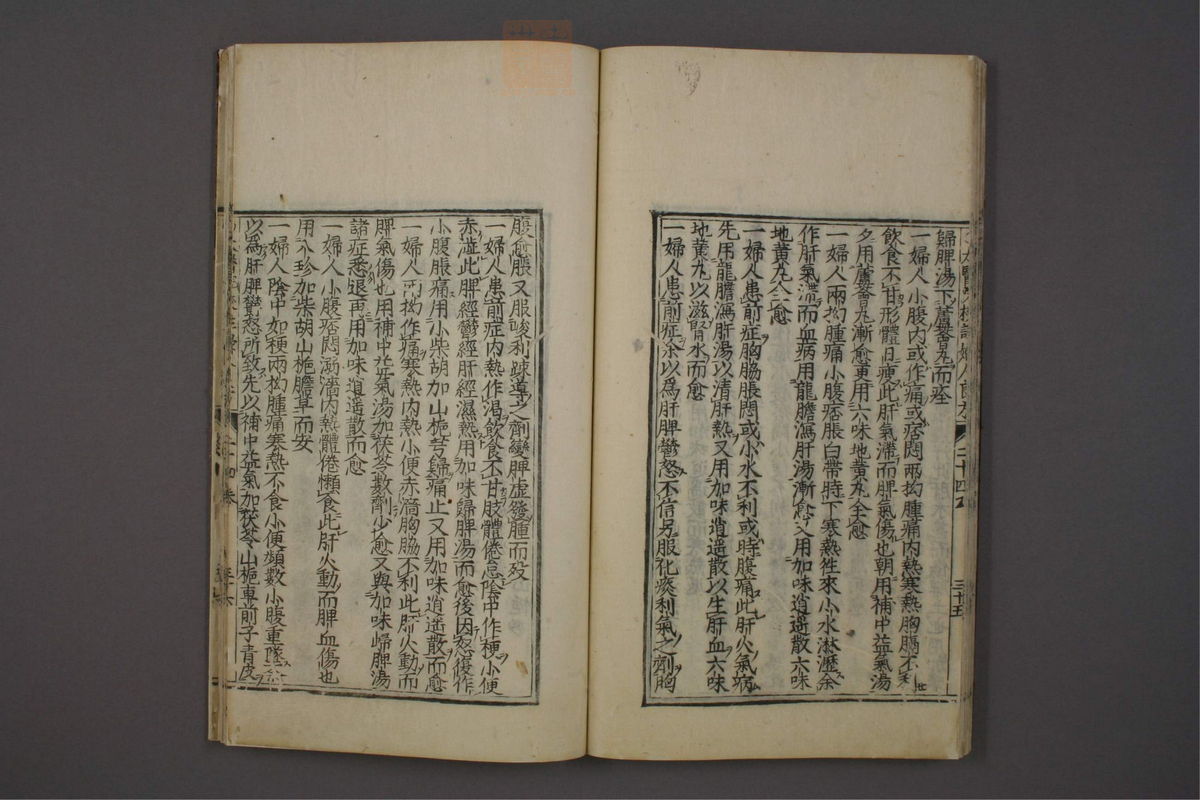 歸脾湯下蘆薈丸而痊
一婦人小腹內或作痛或痞悶兩拗腫痛內熱寒熱胸膈不利
飲食不甘形體日瘦此肝氣滯而脾氣傷也朝用補中益氣湯
夕用蘆薈丸漸愈更用六味地黃丸全愈
一婦人兩拗腫痛小腹痞脹白帶時下寒熱徃來小水淋瀝余
作肝氣滯而血病用龍膽瀉肝湯漸愈又用加味逍遥散六味
地黃丸全愈
一婦人患前症胸脇脹悶或小水不利或時腹痛此肝火氣病
先用龍膽瀉肝湯以清肝熱又用加味逍遥散以生肝血六味
地黃丸以滋腎水而愈
一婦人患前症余以爲肝脾鬱怒不信另服化痰利氣之劑胸
腹愈脹又服峻利疎導之劑變脾虛發腫而殁
一婦人患前症內熱作渴飲食不甘肢體倦怠陰中作梗小便
赤澁此脾經鬱經肝經濕熱用加味歸脾湯而愈後因怒復作
小腹脹痛用小柴胡加山梔芎歸痛止又用加味逍遥散而愈
一婦人兩拗作痛寒熱內熱小便赤濇胸脇不利此肝火動而
脾氣傷也用補中益氣湯加茯苓數劑少愈又與加味歸脾湯
諸症悉退再用加味逍遥散而愈
一婦人小腹痞悶溺濇內熱體倦懶食此肝火動而脾血傷也
用八珍加柴胡山梔膽草而安
一婦人陰中如梗兩拗腫痛寒熱不食小便頻數小腹重墜
以爲肝脾鬱怒所致先以補中益氣加茯苓山梔車前子青皮